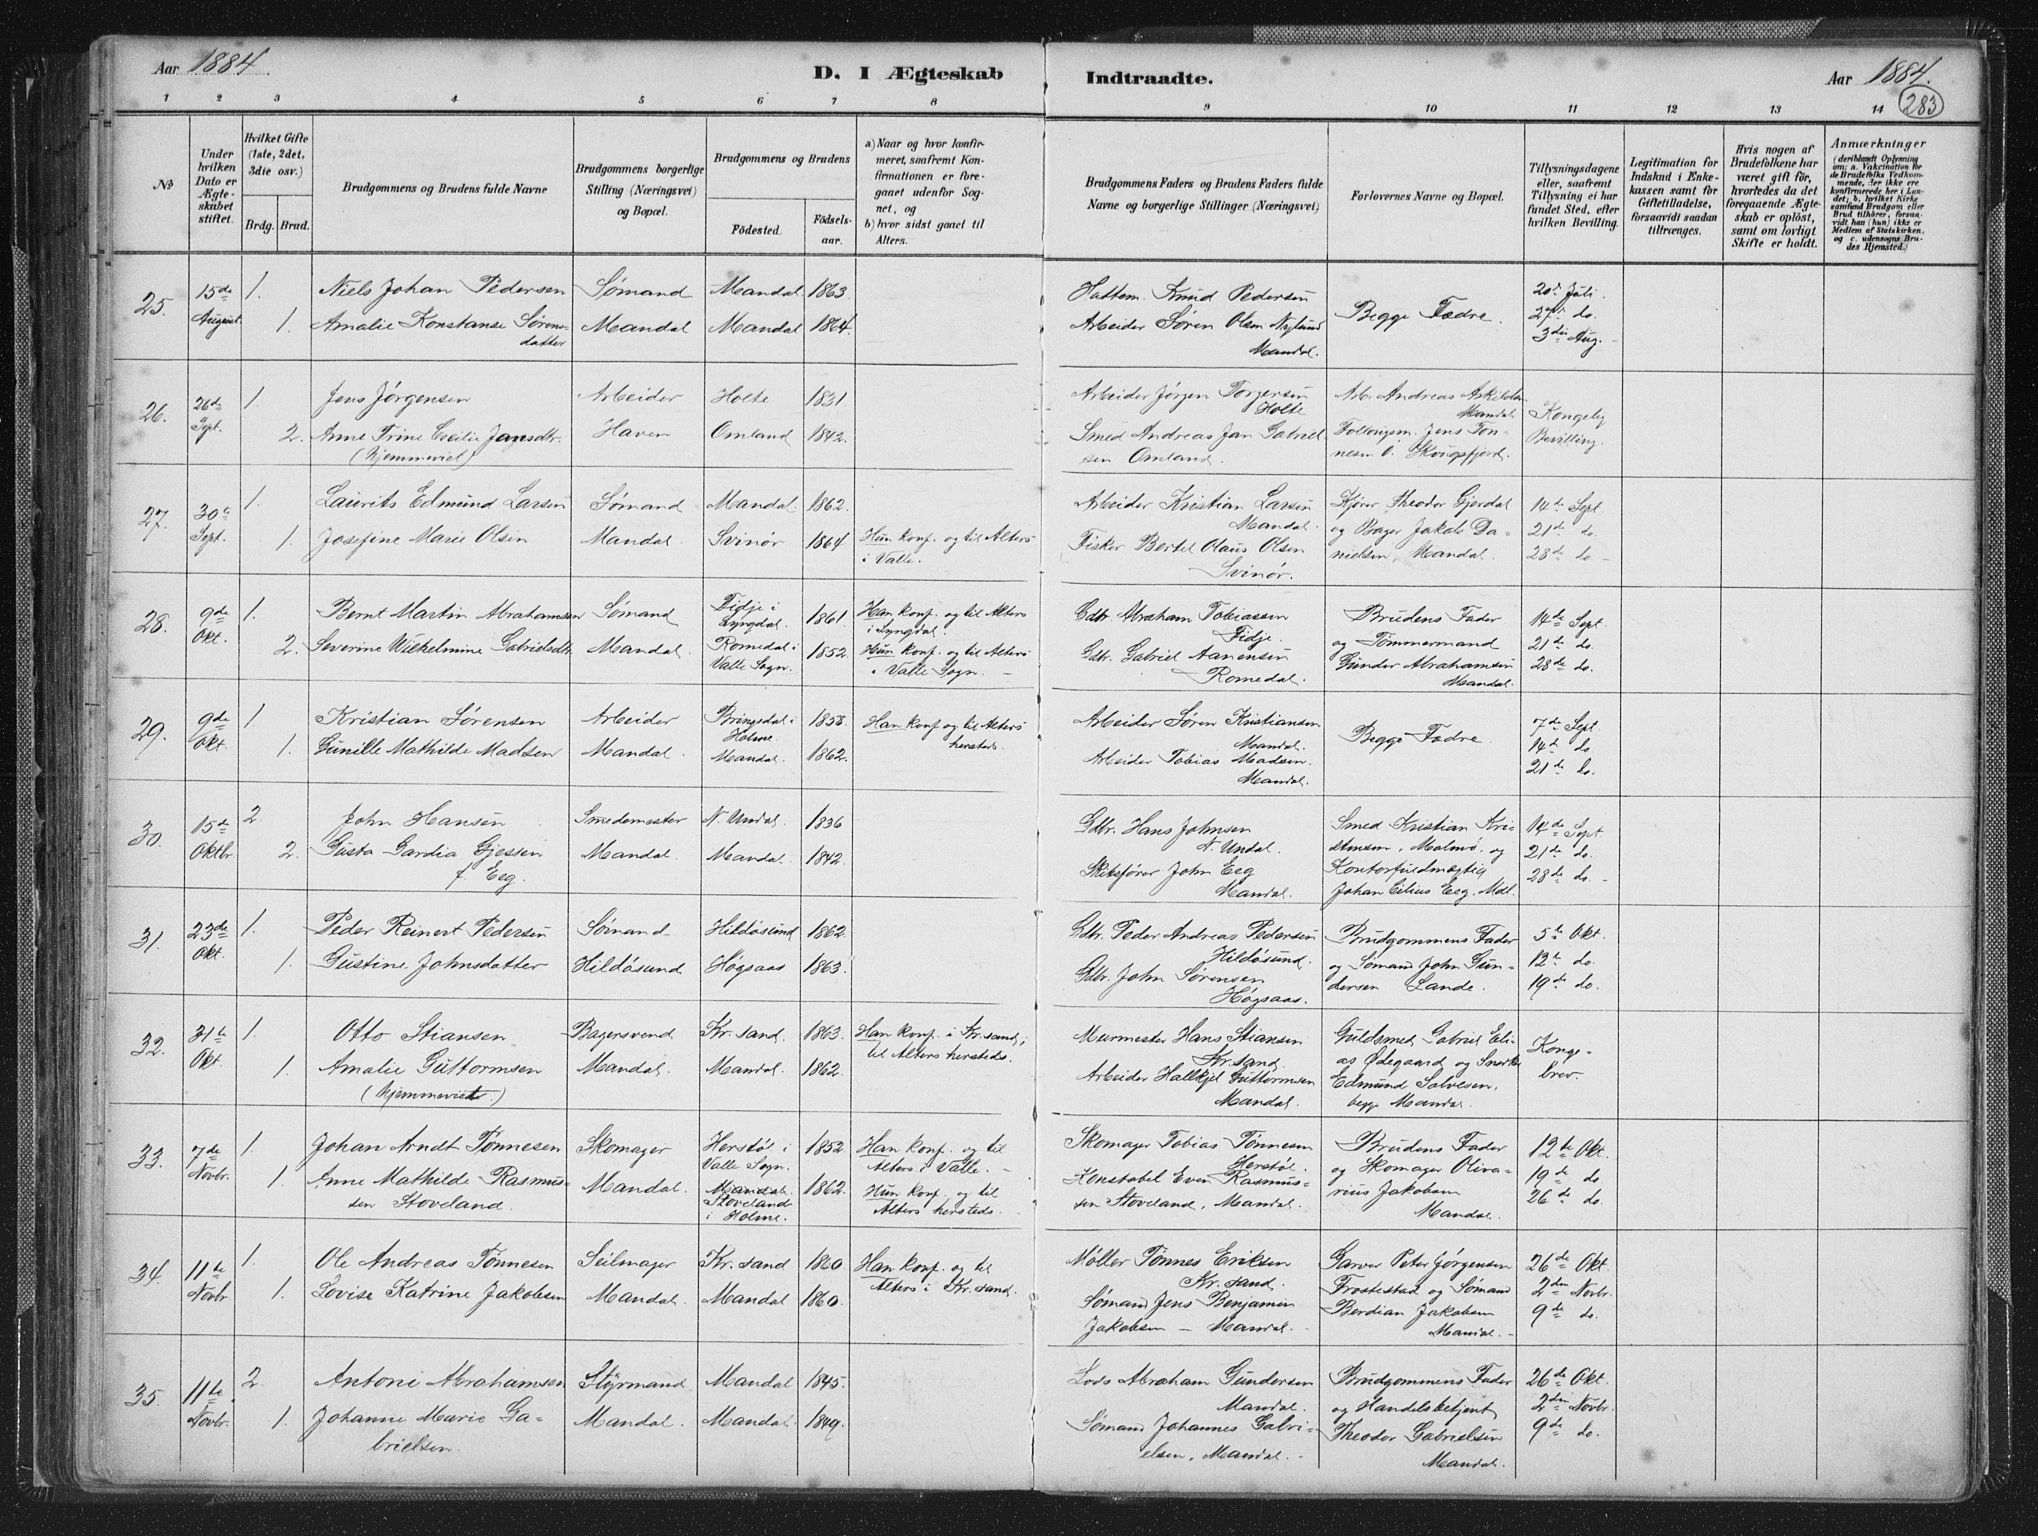 Aar 1884.
D. I Ægteskab
Indtraadte.
Aar 1884.
283
1 2 3 4 5 6 7 8 9 10 11 12 13 14
No
Under hvilken Dato er Ægteskabet stiftet.
Hvilket Gifte (1ste, 2det, 3die osv.)
Brdg. Brud.
Brudgommens og Brudens fulde Navne
Brudgommens borgerlige Stilling (Næringsvei) og Bopæl.
Brudgommens og Brudens
Födested.
Födsels-aar.
a) Naar og hvor konfirmeret, saafremt Konfirmationen er foregaaet udenfor Sognet, og
b) hvor sidst gaaet til Alters.
Brudgommens Faders og Brudens Faders fulde Navne og borgerlige Stillinger (Næringsvei)
Forlovernes Navne og Bopæl.
Tillysningsdagene eller, saafremt Tillysning ei har fundet Sted, efter hvilken Bevilling.
Legitimation for Indskud i Enkekassen samt for Giftetilladelse, forsaavidt saadan tiltrænges.
Hvis nogen af Brudefolkene har været gift før, hvorledes da det foregaaende Ægteskab er oplöst, samt om lovligt Skifte er holdt.
Anmærkninger (deriblandt Oplysning om: a. Vakcination for de Brudefolks Vedkommende, der ikke ere konfirmerede her i Landet; b. hvilket Kirkesamfund Brudgom eller Brud tilhörer, forsaavidt han (hun) ikke er Medlem af Statskirken, og c. udensogns Brudes Hjemsted.)
25. 15de August. 1. Niels Johan Pedersen Sømand Mandal 1863. Hattem. Knud Pedersen Begge Fædre. 20de Juli.
1. Amalie Konstanse Sørens- Mandal Mandal 1864. Arbeider Søren Olsen Nylund 27de do.
datter Mandal. 3die Aug.
26. 26de Sept. 1. Jens Jørgensen Arbeider Holte 1831 Arbeider Jørgen Torgersen Arb. Andreas Askildsen
Holte Mandal Kongelig
2. Anne Trine Cecilie Jansdtr. Haven Omland 1842. Smed Andreas Jan Gabriel- Jens Tøn- Bevilling.
(Hjemmeviet) sen Omland. nesen
27. 30te Sept. 1. Laurits Edmund Larsen Sømand Mandal. 1862. Arbeider Kristian Larsen Kjører Theodor Gjerdal 14de Sept.
Mandal. og Bager Jakob Da- 21de do.
1. Josefine Marie Olsen Mandal. Svinør 1864 Hun konf. og til Alters Fisker Bertel Olaus Olsen nielsen, Mandal. 28de do.
i Valle. Svinør.
28. 9de Okt. 1. Bernt Martin Abrahamsen Sømand Fidje i Lyngdal. 1861. Han konf. og til Alters i Lyngdal. Gdbr. Abraham Tobiassen Brudens Fader 14de Sept.
Fidje. og Tømmermand 21de do.
2. Severine Wilhelmine Gabrielsdtr. Mandal. Romedal i Valle Sogn. 1852. Hun konf. og til Alters Gdbr. Gabriel Aanensen Gunder Abrahamsen 28de do.
i Valle Sogn. Romedal. Mandal.
29. 9de Okt. 1 Kristian Sørensen Arbeider Bringsdal i Holme. 1858. Han konf. og til Alters Arbeider Søren Kristiansen Begge Fædre. 7de Sept.
hersteds. Mandal. 14de do.
1. Gunille Mathilde Madsen Mandal. Mandal. 1862. Arbeider Tobias Madsen 21de do.
Mandal.
30. 15de Oktbr. 2. John Hansen Smedemester N. Undal. 1836 Gdbr. Hans Johnsen Smed Kristian Kri- 14de Sept
N. Undal. stensen, Malmø. og 21de do.
2. Gusta Gardia Gjessen Mandal. Mandal. 1842. Skibsfører John Eeg Kontorfuldmægtig 28de do.
f. Eeg. Mandal. Johan Cilius Eeg. Mdl.
31. 23de Okt. 1. Peder Reinert Pedersen Sømand Hildøsund 1862. Gdbr. Peder Andreas Pedersen Brudgommens Fader 5te Okt.
Hildøsund. og Sømand John Gun- 12te do.
1. Gustine Johnsdatter Hildøsund Høgsaas 1863. Gdbr. John Sørensen dersen Lande. 19de do.
Høgsaas.
32. 31te Okt. 1. Otto Stiansen Bagersvend Kr. sand. 1863. Han konf. i Kr. sand, Murmester Hans Stiansen Guldsmed Gabriel Eli-
til Alters hersteds. Kr. sand. as Ødegaard og Snerker Konge-
1. Amalie Guttormsen Mandal. Mandal. 1862. Arbeider Hallkjel Guttormsen Edmund Salvesen, brev.
(Hjemmeviet.) Mandal. begge Mandal.
33. 7de Novbr. 1. Johan Arndt Tønnesen Skomager Herstøl i Valle Sogn. 1852. Han konf. og til Alters i Valle. Skomager Tobias Tønnesen Brudens Fader 12te Okt.
Herstøl. og Skomager Oliva- 19de do
1. Anne Mathilde Rasmus- Mandal. Mandal. Stoveland i Holme. 1862. Hun konf. og til Konstabel Even Rasmus- rius Jakobsen 26de do.
sen Stoveland. Alters hersteds. sen Stoveland, Mandal. Mandal.
34. 11te Novbr. 1. Ole Andreas Tønnesen Seilmager Kr. sand 1860. Han konf. og til Møller Tønnes Eriksen Garver Peter Jørgensen 26de Okt.
Alters i Kr. sand. Kr. sand. Frostestad og Sømand 2den Novbr.
1. Lovise Katrine Jakobsen Mandal. Mandal 1860. Sømand Jens Benjamin Berdian Jakobsen 9de do.
Jakobsen – Mandal. Mandal.
35. 11te Novbr. 2. Antoni Abrahamsen Styrmand Mandal 1845. Lods Abraham Gundersen Brudgommens Fader 26de Okt.
Mandal. og Handelsbetjent 2den Novbr.
1. Johanne Marie Ga- Mandal. Mandal. 1849. Sømand Johannes Gabri- Theodor Gabrielsen 9de do.
brielsen. elsen, Mandal. Mandal.